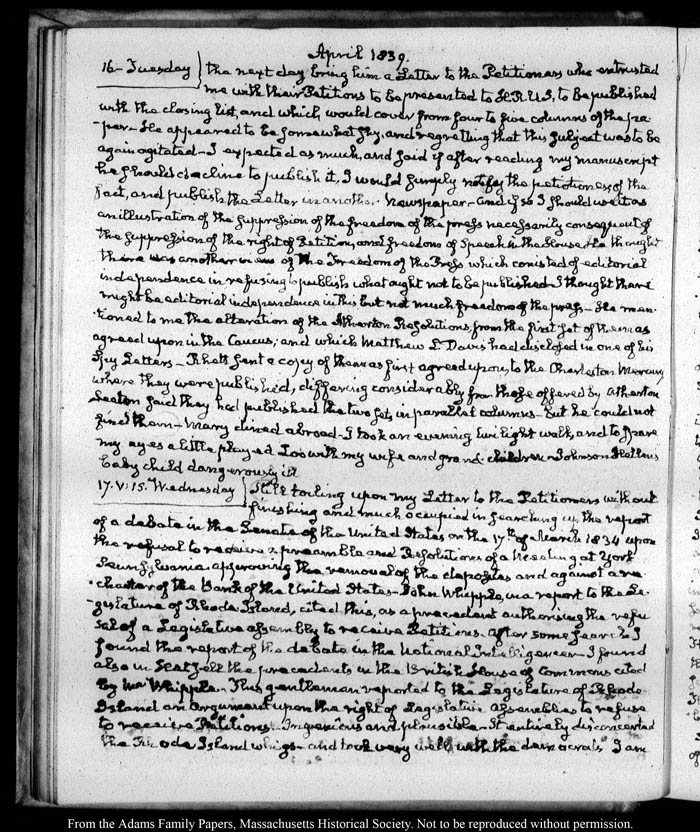 April 1839.
16 - Tuesday } the next day bring him a Letter to the Petitioners who entrusted
me with their Petitions to be presented to H.R.U.S, to be published
with the closing list, and which would cover from four to five columns of the pa-
-per - He appeared to be somewhat shy, and regretting that this subject was to be
again agitated - I expected as much, and said if after reading my manuscript
he should decline to publish it, I would simply notify the petitioners of the
fact, and publish the Letter in another Newspaper - and if so I should use it as
an illustration of the suppression of the freedom of the press necessarily consequent of
the suppression of the right of Petition, and freedom of Speech in the House. He thought
there was another view of the Freedom of the Press which consisted of editorial
independence in refusing to publish what ought not to be published - I thought there
might be editorial independence in this but not much freedom of the press - He men-
-tioned to me the alteration of the Atherton Resolutions, from the first set of them as
agreed upon in the Caucus; and which Matthew L. Davis had disclosed in one of his
Spy Letters - Rhett sent a copy of them as first agreed upon, to the Charleston Mercury
where they were published, differing considerably from those offered by Atherton
Seaton said they had published the two sets in parallel columns - but he could not
find them - Mary dined abroad - I took an evening twilight walk, and to spare
my eyes a little played Loo with my wife and grand-children - Johnson Hellens
baby child dangerously ill
17. V:15. Wednesday } Still toiling upon my Letter to the Petitioners without
finishing and much occupied in searching up the report
of a debate in the Senate of the United States on the 17th of March 1834 upon
the refusal to receive a preamble and Resolutions of a Meeting at York
Pennsylvania approving the removal of the deposites and against a re-
-charter of the Bank of the United States - John Whipple, in a report to the Le-
-gislature of Rhode Island, cited this, as a precedent authorising the refu-
sal of a Legislative assembly to receive Petitions. After some search I
found the report of the debate in the National Intelligencer - I found
also in Hatsell the precedents in the British House of Commons cited
by Mr Whipple. This gentleman reported to the Legislature of Rhode
Island an argument upon the right of Legislative Assemblies to refuse
to receive Petitions - Ingenious and plausible - It entirely disconcerted
the Rhode Island whigs - and took very well with the democrats. I am
From the Adams Family Papers, Massachusetts Historical Society. Not to be reproduced without permission.